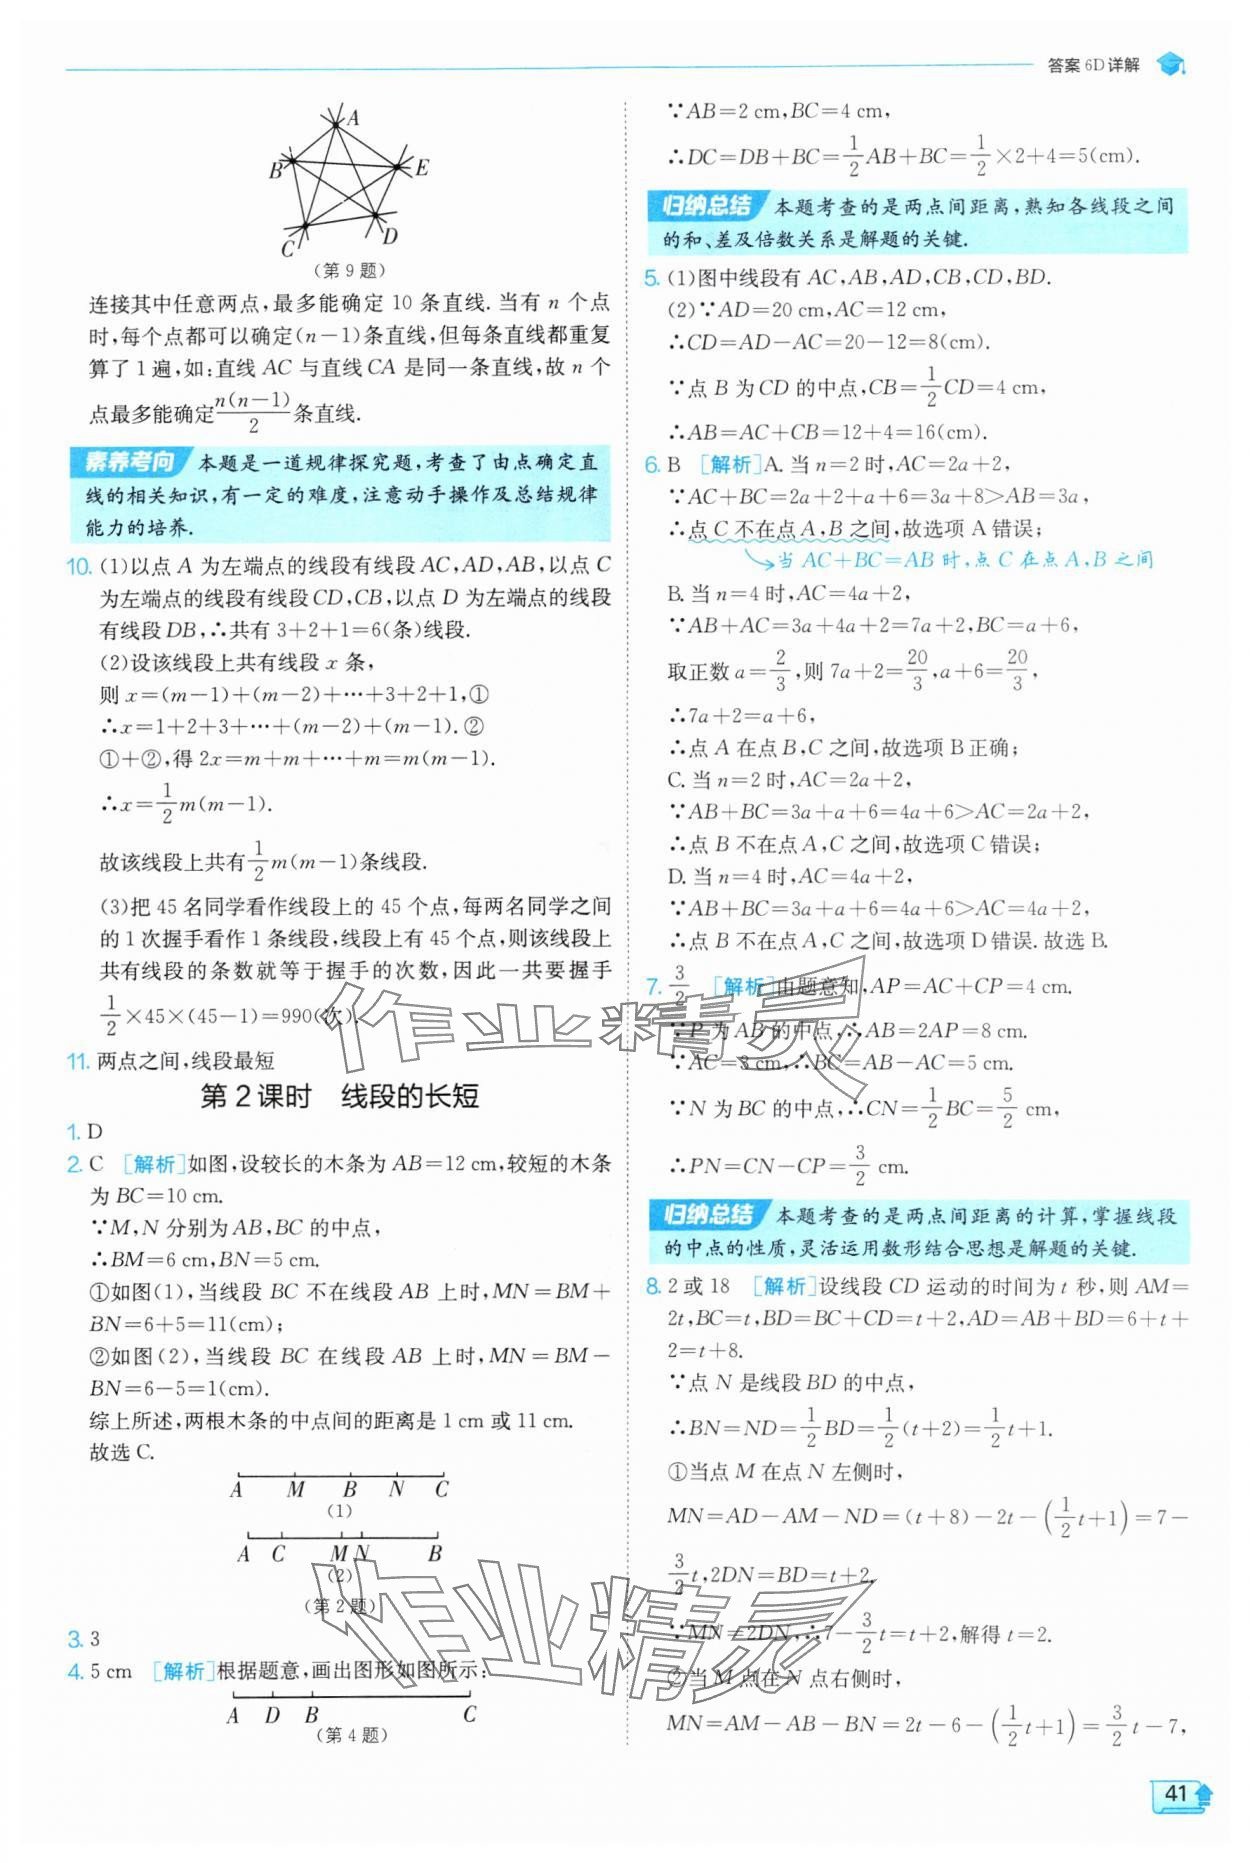 答案 6D 详解
A
B
E
C
D
(第 9 题)
连接其中任意两点,最多能确定 10 条直线. 当有 n 个点
时,每个点都可以确定(n-1)条直线,但每条直线都重复
算了 1 遍,如:直线 AC 与直线 CA 是同一条直线,故 n 个
点最多能确定n(n-1)/2条直线.
素养考向 本题是一道规律探究题,考查了由点确定直
线的相关知识,有一定的难度,注意动手操作及总结规律
能力的培养.
10. (1)以点 A 为左端点的线段有线段 AC,AD,AB,以点 C
为左端点的线段有线段 CD,CB,以点 D 为左端点的线段
有线段 DB,∴共有 3+2+1=6(条)线段.
(2)设该线段上共有线段 x 条,
则 x=(m-1)+(m-2)+…+3+2+1,①
∴x=1+2+3+…+(m-2)+(m-1). ②
①+②,得 2x=m+m+…+m=m(m-1).
∴x=1/2m(m-1).
故该线段上共有1/2m(m-1)条线段.
(3)把 45 名同学看作线段上的 45 个点,每两名同学之间
的 1 次握手看作 1 条线段,线段上有 45 个点,则该线段上
共有线段的条数就等于握手的次数,因此一共要握手
1/2×45×(45-1)=990(次).
11. 两点之间,线段最短
第 2 课时 线段的长短
1. D
2. C [解析]如图,设较长的木条为 AB=12 cm,较短的木条
为 BC=10 cm.
∵M,N 分别为 AB,BC 的中点,
∴BM=6 cm,BN=5 cm.
①如图(1),当线段 BC 不在线段 AB 上时,MN=BM+
BN=6+5=11(cm);
②如图(2),当线段 BC 在线段 AB 上时,MN=BM-
BN=6-5=1(cm).
综上所述,两根木条的中点间的距离是 1 cm 或 11 cm.
故选 C.
A M B N C
(1)
A C M N B
(2)
(第 2 题)
3. 3
4. 5 cm [解析]根据题意,画出图形如图所示:
A D B C
(第 4 题)
∵AB=2 cm,BC=4 cm,
∴DC=DB+BC=1/2AB+BC=1/2×2+4=5(cm).
归纳总结 本题考查的是两点间距离,熟知各线段之间
的和、差及倍数关系是解题的关键.
5. (1)图中线段有 AC,AB,AD,CB,CD,BD.
(2)∵AD=20 cm,AC=12 cm,
∴CD=AD-AC=20-12=8(cm).
∵点 B 为 CD 的中点,CB=1/2CD=4 cm,
∴AB=AC+CB=12+4=16(cm).
6. B [解析]A. 当 n=2 时,AC=2a+2,
∵AC+BC=2a+2+a+6=3a+8>AB=3a,
∴点 C 不在点 A,B 之间,故选项 A 错误;
当 AC+BC=AB 时,点 C 在点 A,B 之间
B. 当 n=4 时,AC=4a+2,
∵AB+AC=3a+4a+2=7a+2,BC=a+6,
取正数 a=2/3,则 7a+2=20/3,a+6=20/3,
∴7a+2=a+6,
∴点 A 在点 B,C 之间,故选项 B 正确;
C. 当 n=2 时,AC=2a+2,
∵AB+BC=3a+a+6=4a+6>AC=2a+2,
∴点 B 不在点 A,C 之间,故选项 C 错误;
D. 当 n=4 时,AC=4a+2,
∵AB+BC=3a+a+6=4a+6>AC=4a+2,
∴点 B 不在点 A,C 之间,故选项 D 错误. 故选 B.
7. 3/2 [解析]由题意知,AP=AC+CP=4 cm.
∵P 为 AB 的中点,∴AB=2AP=8 cm.
∵AC=3 cm,∴BC=AB-AC=5 cm.
∵N 为 BC 的中点,∴CN=1/2BC=5/2 cm,
∴PN=CN-CP=3/2 cm.
归纳总结 本题考查的是两点间距离的计算,掌握线段
的中点的性质,灵活运用数形结合思想是解题的关键.
8. 2 或 18 [解析]设线段 CD 运动的时间为 t 秒,则 AM=
2t,BC=t,BD=BC+CD=t+2,AD=AB+BD=6+t+
2=t+8.
∵点 N 是线段 BD 的中点,
∴BN=ND=1/2BD=1/2(t+2)=1/2t+1.
①当点 M 在点 N 左侧时,
MN=AD-AM-ND=(t+8)-2t-(1/2t+1)=7-
3/2t,2DN=BD=t+2,
∵MN=2DN,∴7-3/2t=t+2,解得 t=2.
②当 M 点在 N 点右侧时,
MN=AM-AB-BN=2t-6-(1/2t+1)=3/2t-7,
41
作业精灵
作业精灵